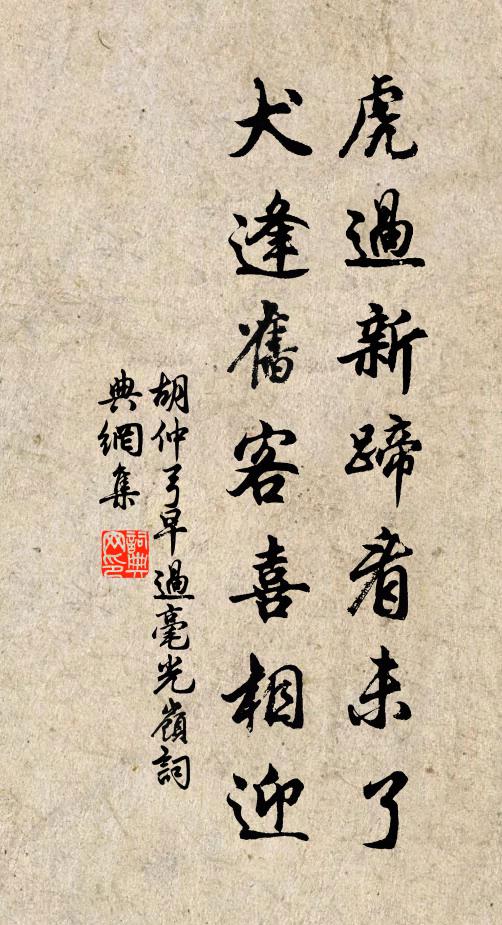 虎過新蹄看未了
犬逢舊客喜相迎
胡仲弓早過毫光嶺詞
典網集
詞典網印